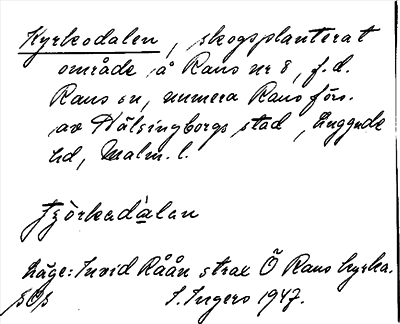 Kyrkodalen, skogsplanterat
område å Raus nr 8, f.d.
Raus sn, numera Raus förs.
av Hälsingborgs stad, Luggude
hd, Malm. l.
Läge: Invid Råån strax Ö Raus kyrka.
S. Ingers 1947.